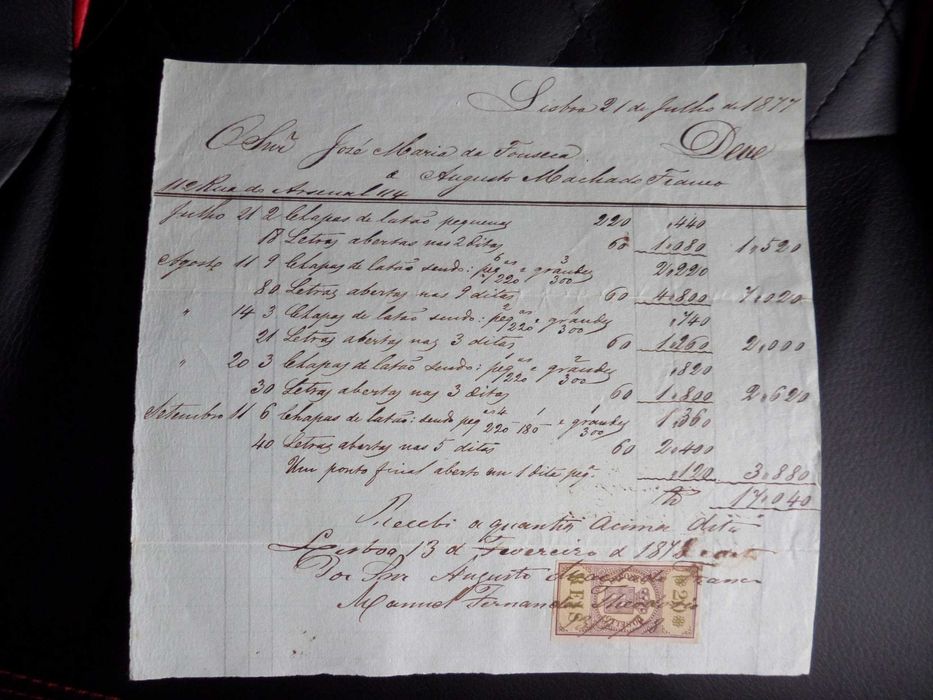 Lisboa 21 de Julho de 1877
O Snr José Maria da Fonseca Deve
a Augusto Machado Franco
112 Rua do Arsenal 114
Julho 21 2 Chapas de latão pequenas 220 ,440
18 Letras abertas nas 2 Ditas 60 1,080 1,520
Agosto 11 9 Chapas de latão sendo: 6 peq.as 220 e 3 grandes 300 2,220
80 Letras abertas nas 9 ditas 60 4,800 7,020
" 14 3 Chapas de latão sendo: 2 peq.as 220 e 1 grandes 300 ,740
21 Letras abertas nas 3 ditas 60 1,260 2,000
" 20 3 Chapas de latão sendo: 1 peq.as 220 e 2 grandes 300 ,820
30 Letras abertas nas 3 Ditas 60 1,800 2,620
Setembro 11 6 Chapas de latão: sendo peq.as 4 220 1 180 e 1 grandes 300 1,360
40 Letras abertas nas 5 ditas 60 2,400
Um ponto final aberto em 1 Dita peq. ,120 3,880
17,040
Recebi a quantia acima dita
Lisboa 13 de Fevereiro de 1878
Por Snr Augusto Machado Franco
Manuel Fernandes
20 REIS